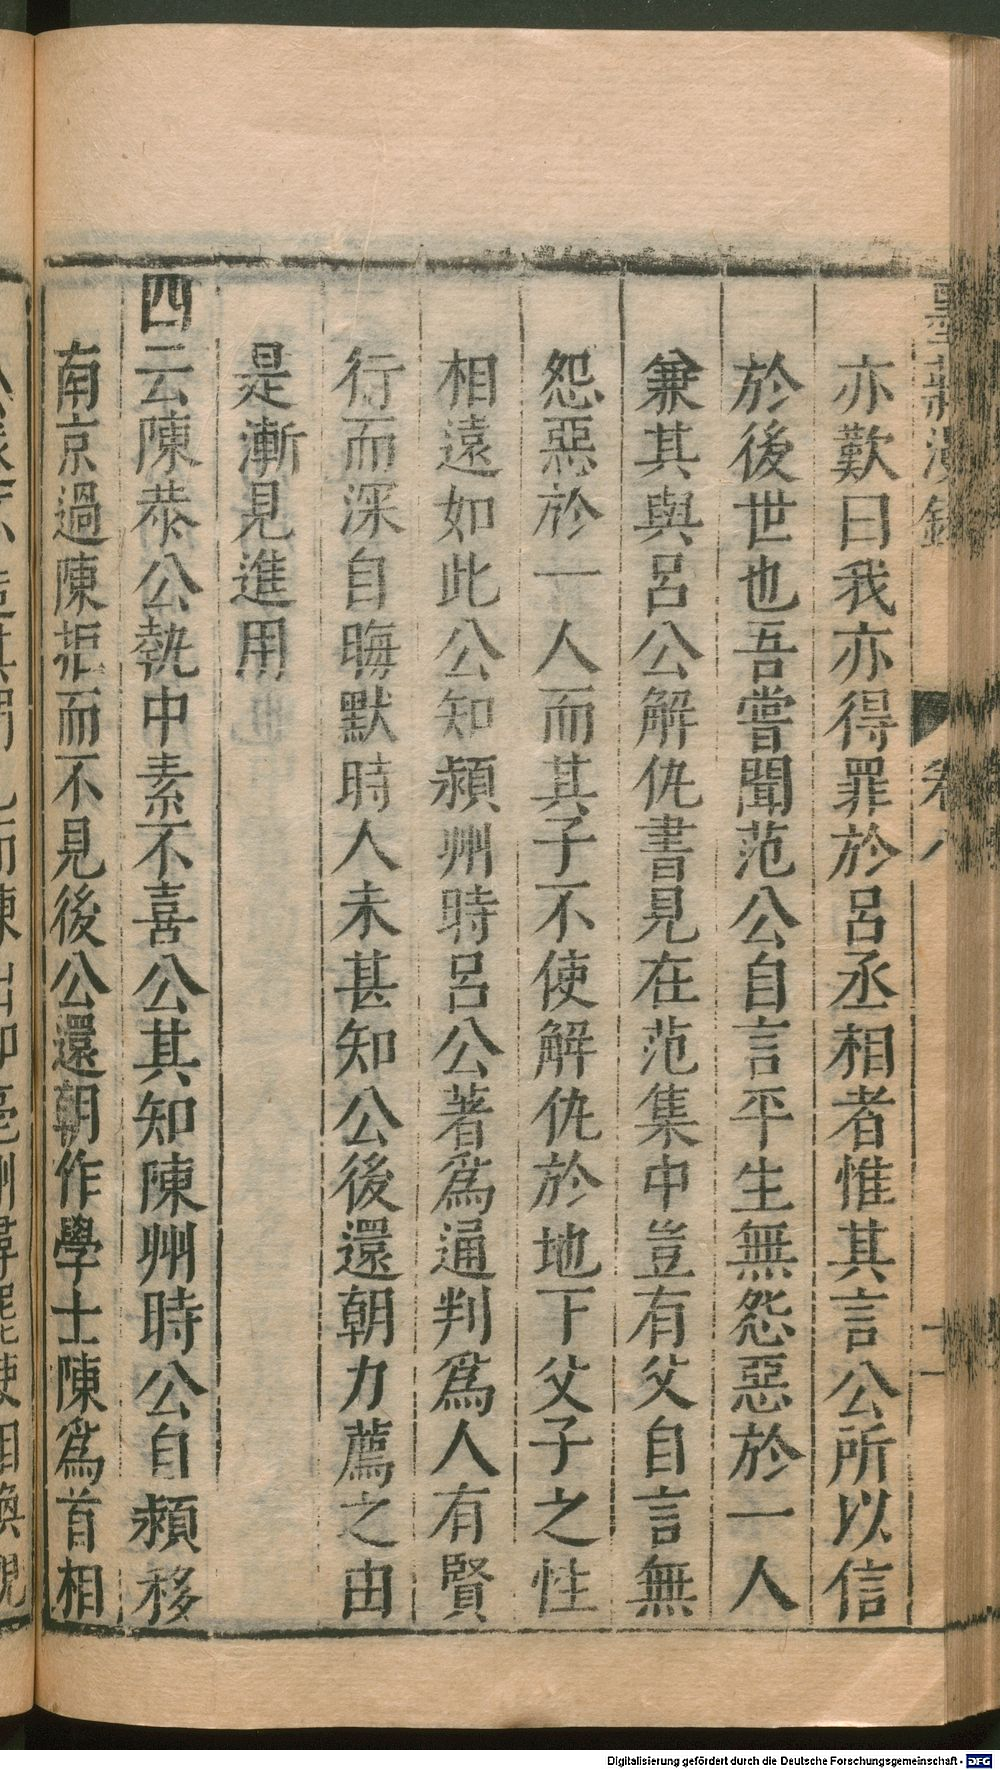 亦歎曰我亦得罪於呂丞相者惟其言公所以信
於後世也吾嘗聞范公自言平生無怨惡於一人
兼其與呂公解仇書見在范集中豈有父自言無
怨惡於一人而其子不使解仇於地下父子之性
相遠如此公知潁州時呂公著爲通判爲人有賢
行而深自晦默時人未甚知公後還朝力薦之由
是漸見進用
四云陳恭公執中素不喜公其知陳州時公自潁移
南京過陳拒而不見後公還朝作學士陳爲首相
Digitalisierung gefördert durch die Deutsche Forschungsgemeinschaft - DFG